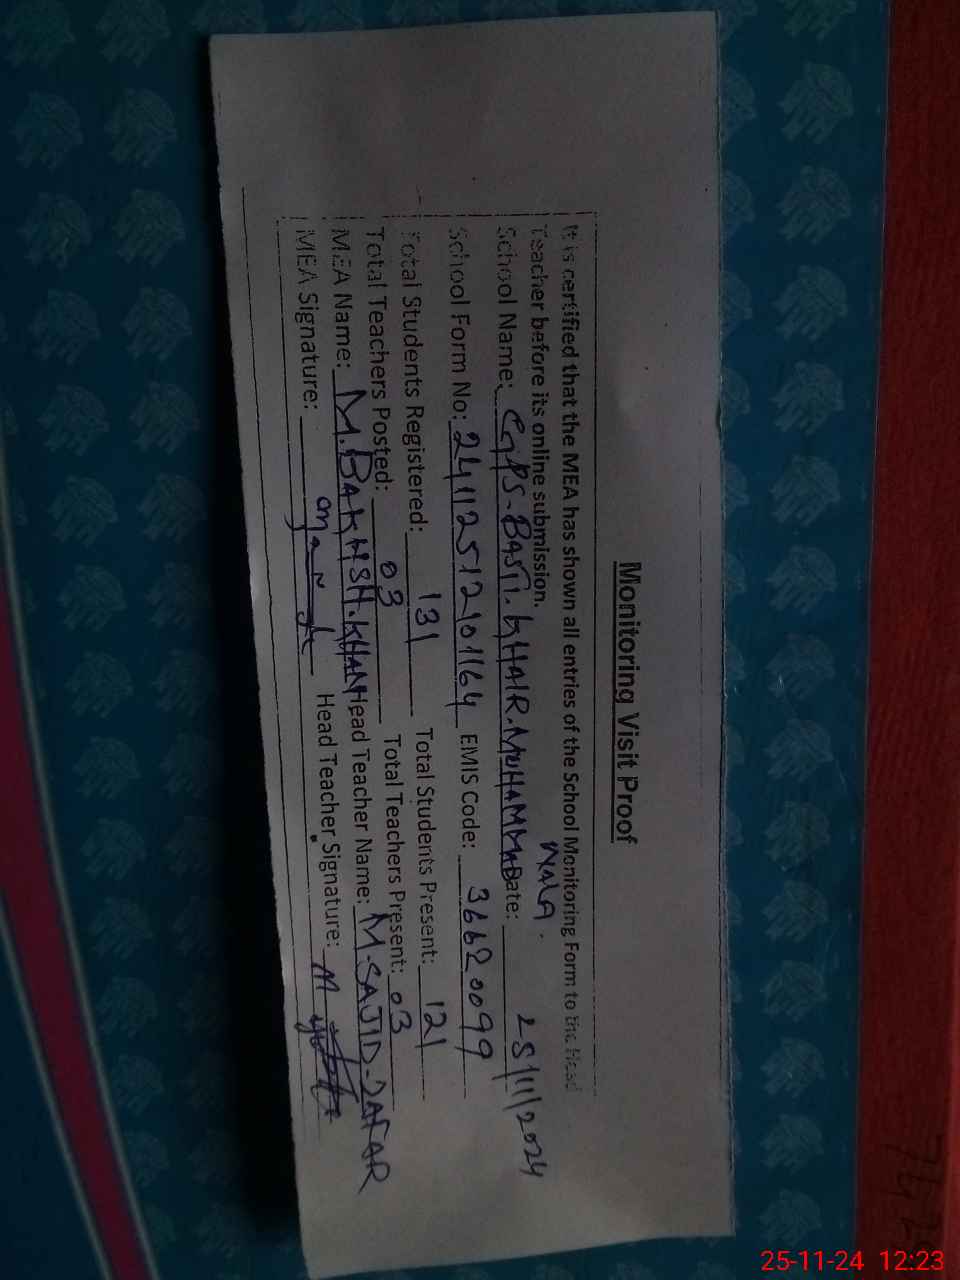 Monitoring Visit Proof
It is certified that the MEA has shown all entries of the School Monitoring Form to the Head
Teacher before its online submission.
WALA.
School Name: GPS-BASTI.KHAIR.MUHAMMAD Date: 25/11/2024
School Form No: 24112512101164 EMIS Code: 36620099
Total Students Registered: 131 Total Students Present: 121
Total Teachers Posted: 03 Total Teachers Present: 03
MEA Name: M.BAKHSH.KHAN Head Teacher Name: M-SAJID-ZAFAR
MEA Signature: Head Teacher Signature:
25-11-24 12:23